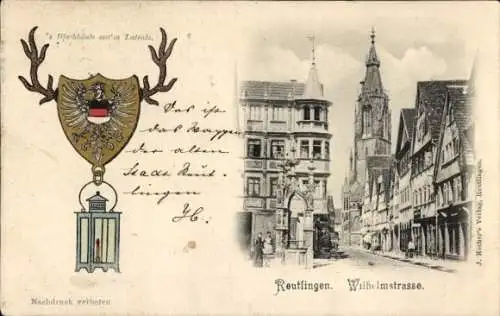 's Hirschhäusle mit'm Laternle.
Das ist
das Wappen
der alten
Stadt Reut-
lingen
Reutlingen. Wilhelmstrasse.
Nachdruck verboten
Verlag, Reutlingen.